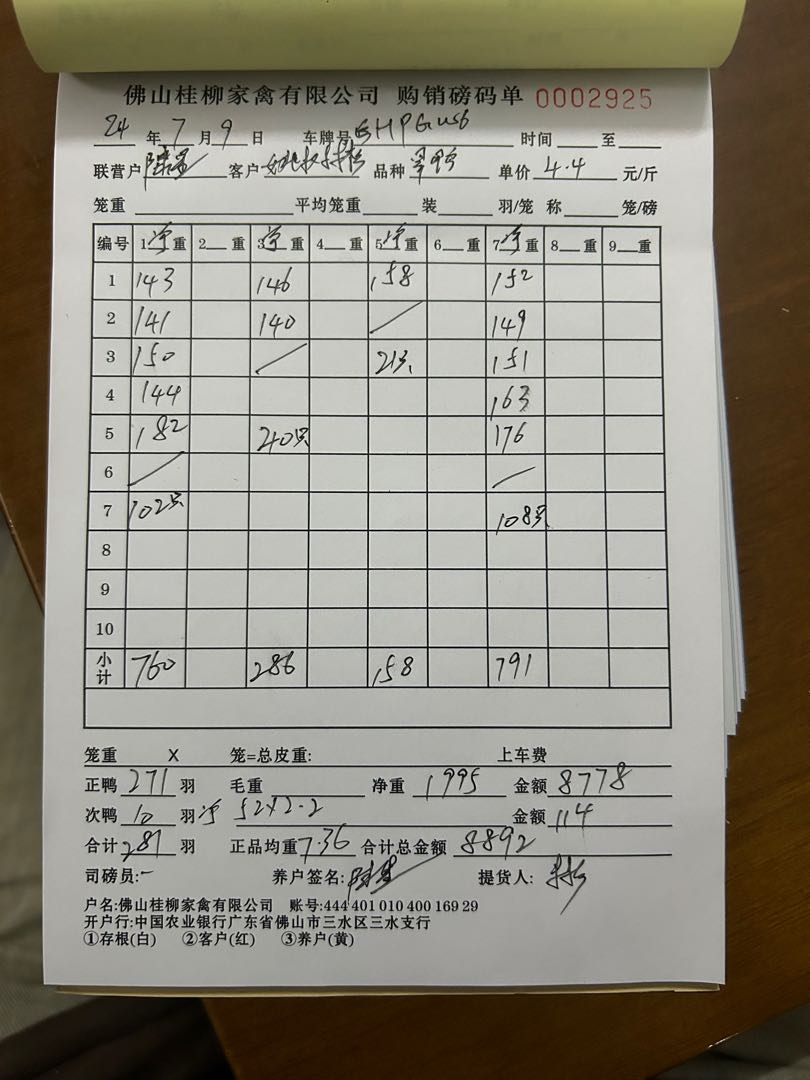 佛山桂柳家禽有限公司 购销磅码单 0002925
24 年 7 月 9 日 车牌号 时间 至
联营户 客户 品种 单价 4.4 元/斤
笼重 平均笼重 装 羽/笼 称 笼/磅
编号 1净重 2 重 3净重 4 重 5净重 6 重 7净重 8 重 9 重
1 143 146 158 152
2 141 140 / 149
3 150 / 21只 151
4 144 163
5 182 40只 176
6 / /
7 102只 108只
8
9
10
小计 760 286 158 791
笼重 X 笼=总皮重: 上车费
正鸭 271 羽 毛重 净重 1995 金额 8778
次鸭 10 羽 净 52×2.2 金额 114
合计 281 羽 正品均重 7.36 合计总金额 8892
司磅员: 养户签名: 提货人:
户名:佛山桂柳家禽有限公司 账号:444 401 010 400 169 29
开户行:中国农业银行广东省佛山市三水区三水支行
①存根(白) ②客户(红) ③养户(黄)